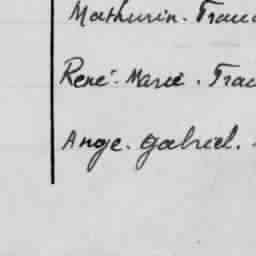 Mathurin. Franc
René-Marie. Fra
Ange. Gabriel.